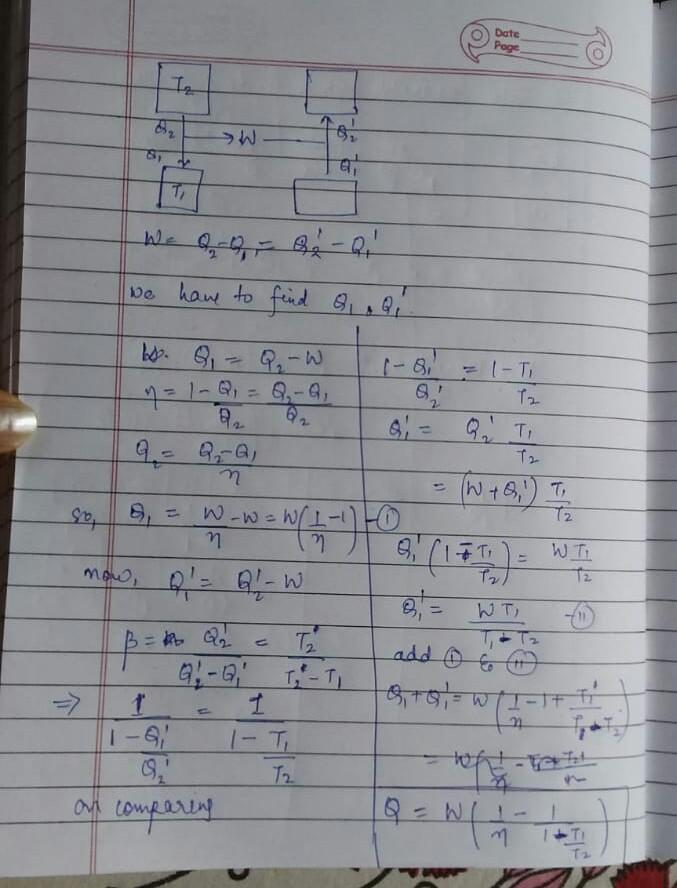 Date
Page
T₂
Q₂ → W Q₂'
Q₁ Q₁'
T₁
W = Q₂-Q₁ = Q₂' - Q₁'
we have to find Q₁ & Q₁'.
Q₁ = Q₂ - W
η = 1 - Q₁/Q₂ = Q₂-Q₁/Q₂
Q₂ = Q₂-Q₁/η
so, Q₁ = W/η - W = W(1/η - 1) -①
now, Q₁' = Q₂' - W
β = Q₂'/Q₂'-Q₁' = T₂/T₂-T₁
⇒ 1/1-Q₁'/Q₂' = 1/1-T₁/T₂
on comparing
1 - Q₁'/Q₂' = 1 - T₁/T₂
Q₁' = Q₂' T₁/T₂
= (W + Q₁') T₁/T₂
Q₁' (1 - T₁/T₂) = W T₁/T₂
Q₁' = W T₁/T₁-T₂ -⑪
add ① & ⑪
Q₁+Q₁' = W (1/η - 1 + T₁/T₁-T₂)
Q = W (1/η - 1/1-T₁/T₂)